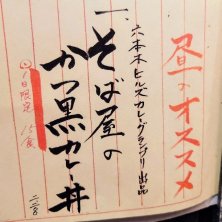 昼のオススメ
六本木ヒルズカレーグランプリ出品
一、そば屋の
かつ黒カレー丼
1日限定15食